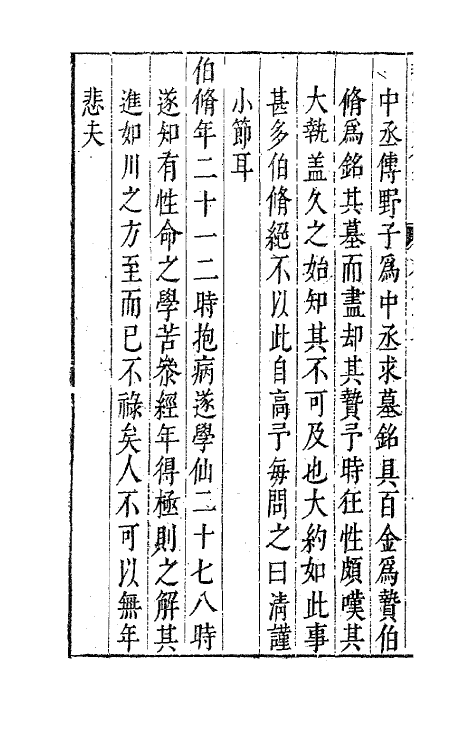 中丞傳野子爲中丞求墓銘具百金爲贄伯
脩爲銘其墓而盡却其贄予時狂性頗嘆其
大執盖久之始知其不可及也大約如此事
甚多伯脩絕不以此自高予每問之曰淸謹
小節耳
伯脩年二十一二時抱病遂學仙二十七八時
遂知有性命之學苦叅經年得極則之解其
進如川之方至而已不祿矣人不可以無年
悲夫